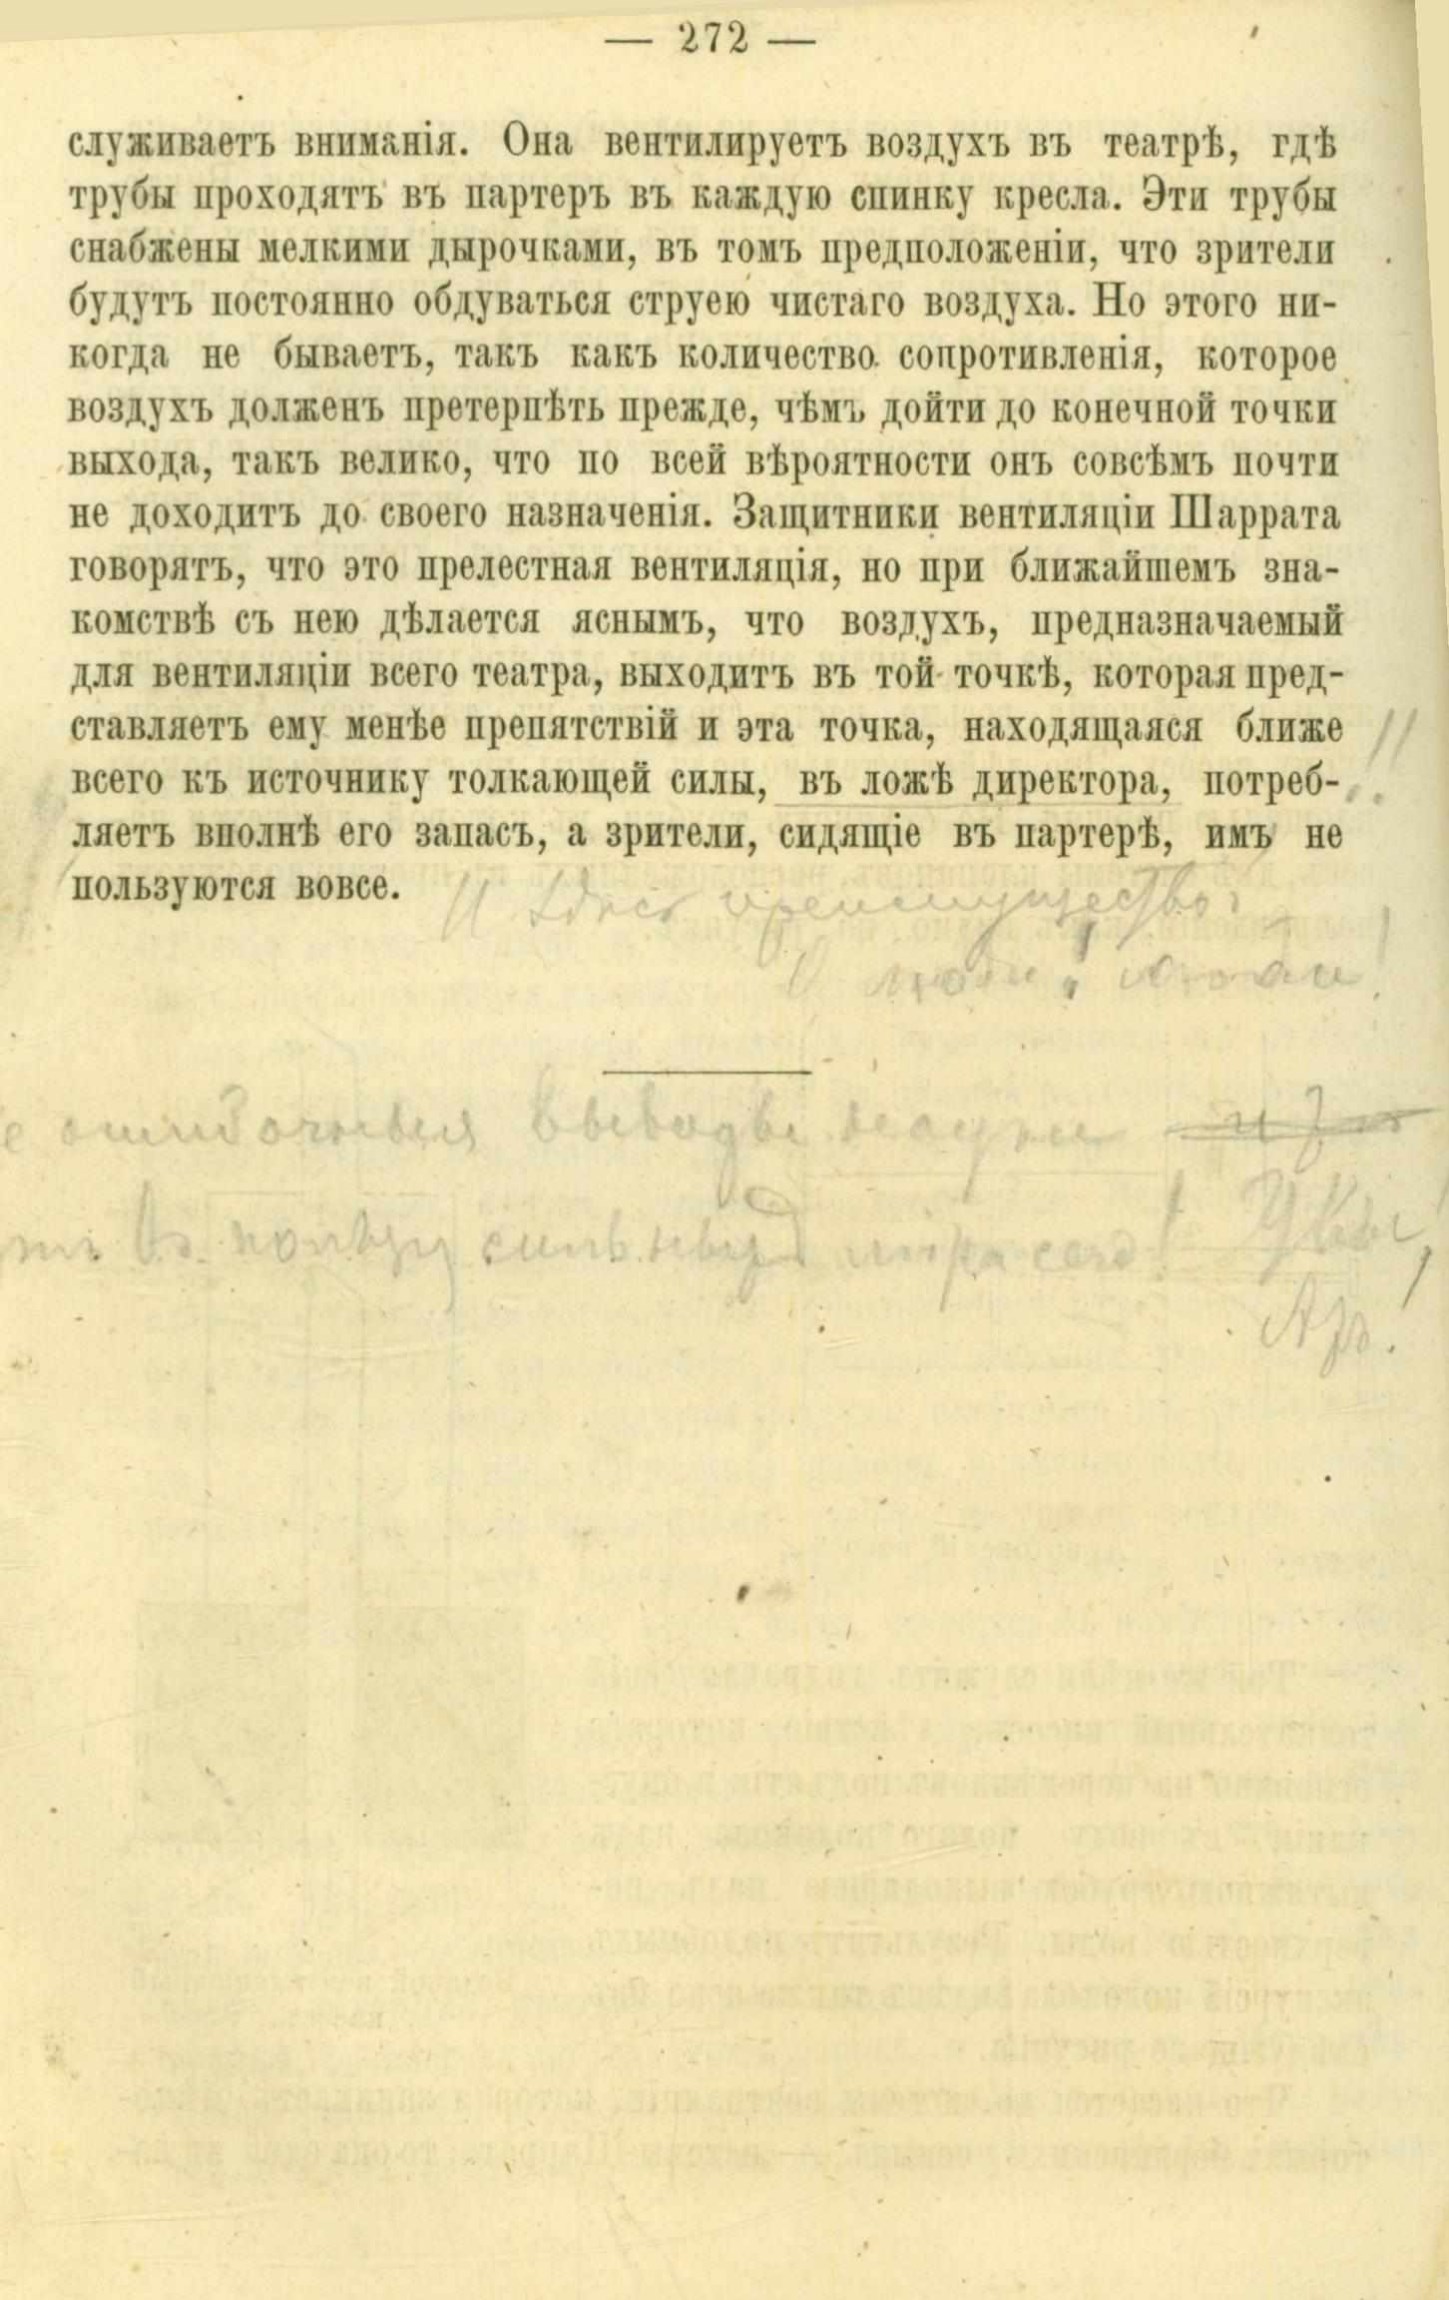 — 272 —
служиваетъ вниманія. Она вентилируетъ воздухъ въ театрѣ, гдѣ
трубы проходятъ въ партеръ въ каждую спинку кресла. Эти трубы
снабжены мелкими дырочками, въ томъ предположеніи, что зрители
будутъ постоянно обдуваться струею чистаго воздуха. Но этого ни-
когда не бываетъ, такъ какъ количество сопротивленія, которое
воздухъ долженъ претерпѣть прежде, чѣмъ дойти до конечной точки
выхода, такъ велико, что по всей вѣроятности онъ совсѣмъ почти
не доходитъ до своего назначенія. Защитники вентиляціи Шаррата
говорятъ, что это прелестная вентиляція, но при ближайшемъ зна-
комствѣ съ нею дѣлается яснымъ, что воздухъ, предназначаемый
для вентиляціи всего театра, выходитъ въ той точкѣ, которая пред-
ставляетъ ему менѣе препятствій и эта точка, находящаяся ближе
всего къ источнику толкающей силы, въ ложѣ директора, потреб- !!
ляетъ вполнѣ его запасъ, а зрители, сидящіе въ партерѣ, имъ не
пользуются вовсе.
И здѣсь преимущество!
О люди! люди!
ошибочныя выводы науки
въ пользу сильныхъ міра сего! Увы!